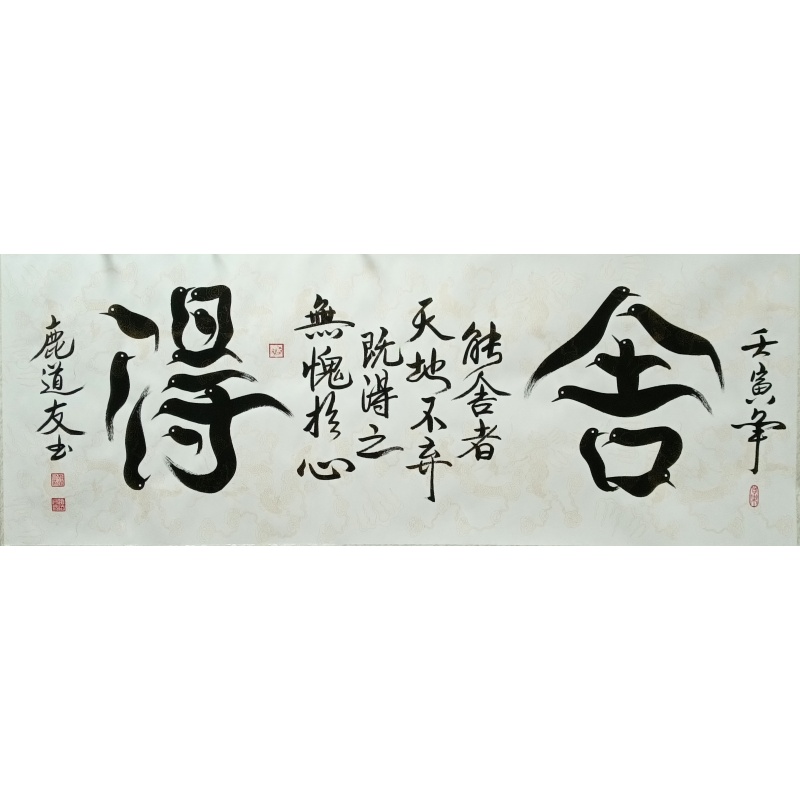 壬寅年
舍
能舍者
天地不弃
既得之
無愧於心
得
鹿道友书